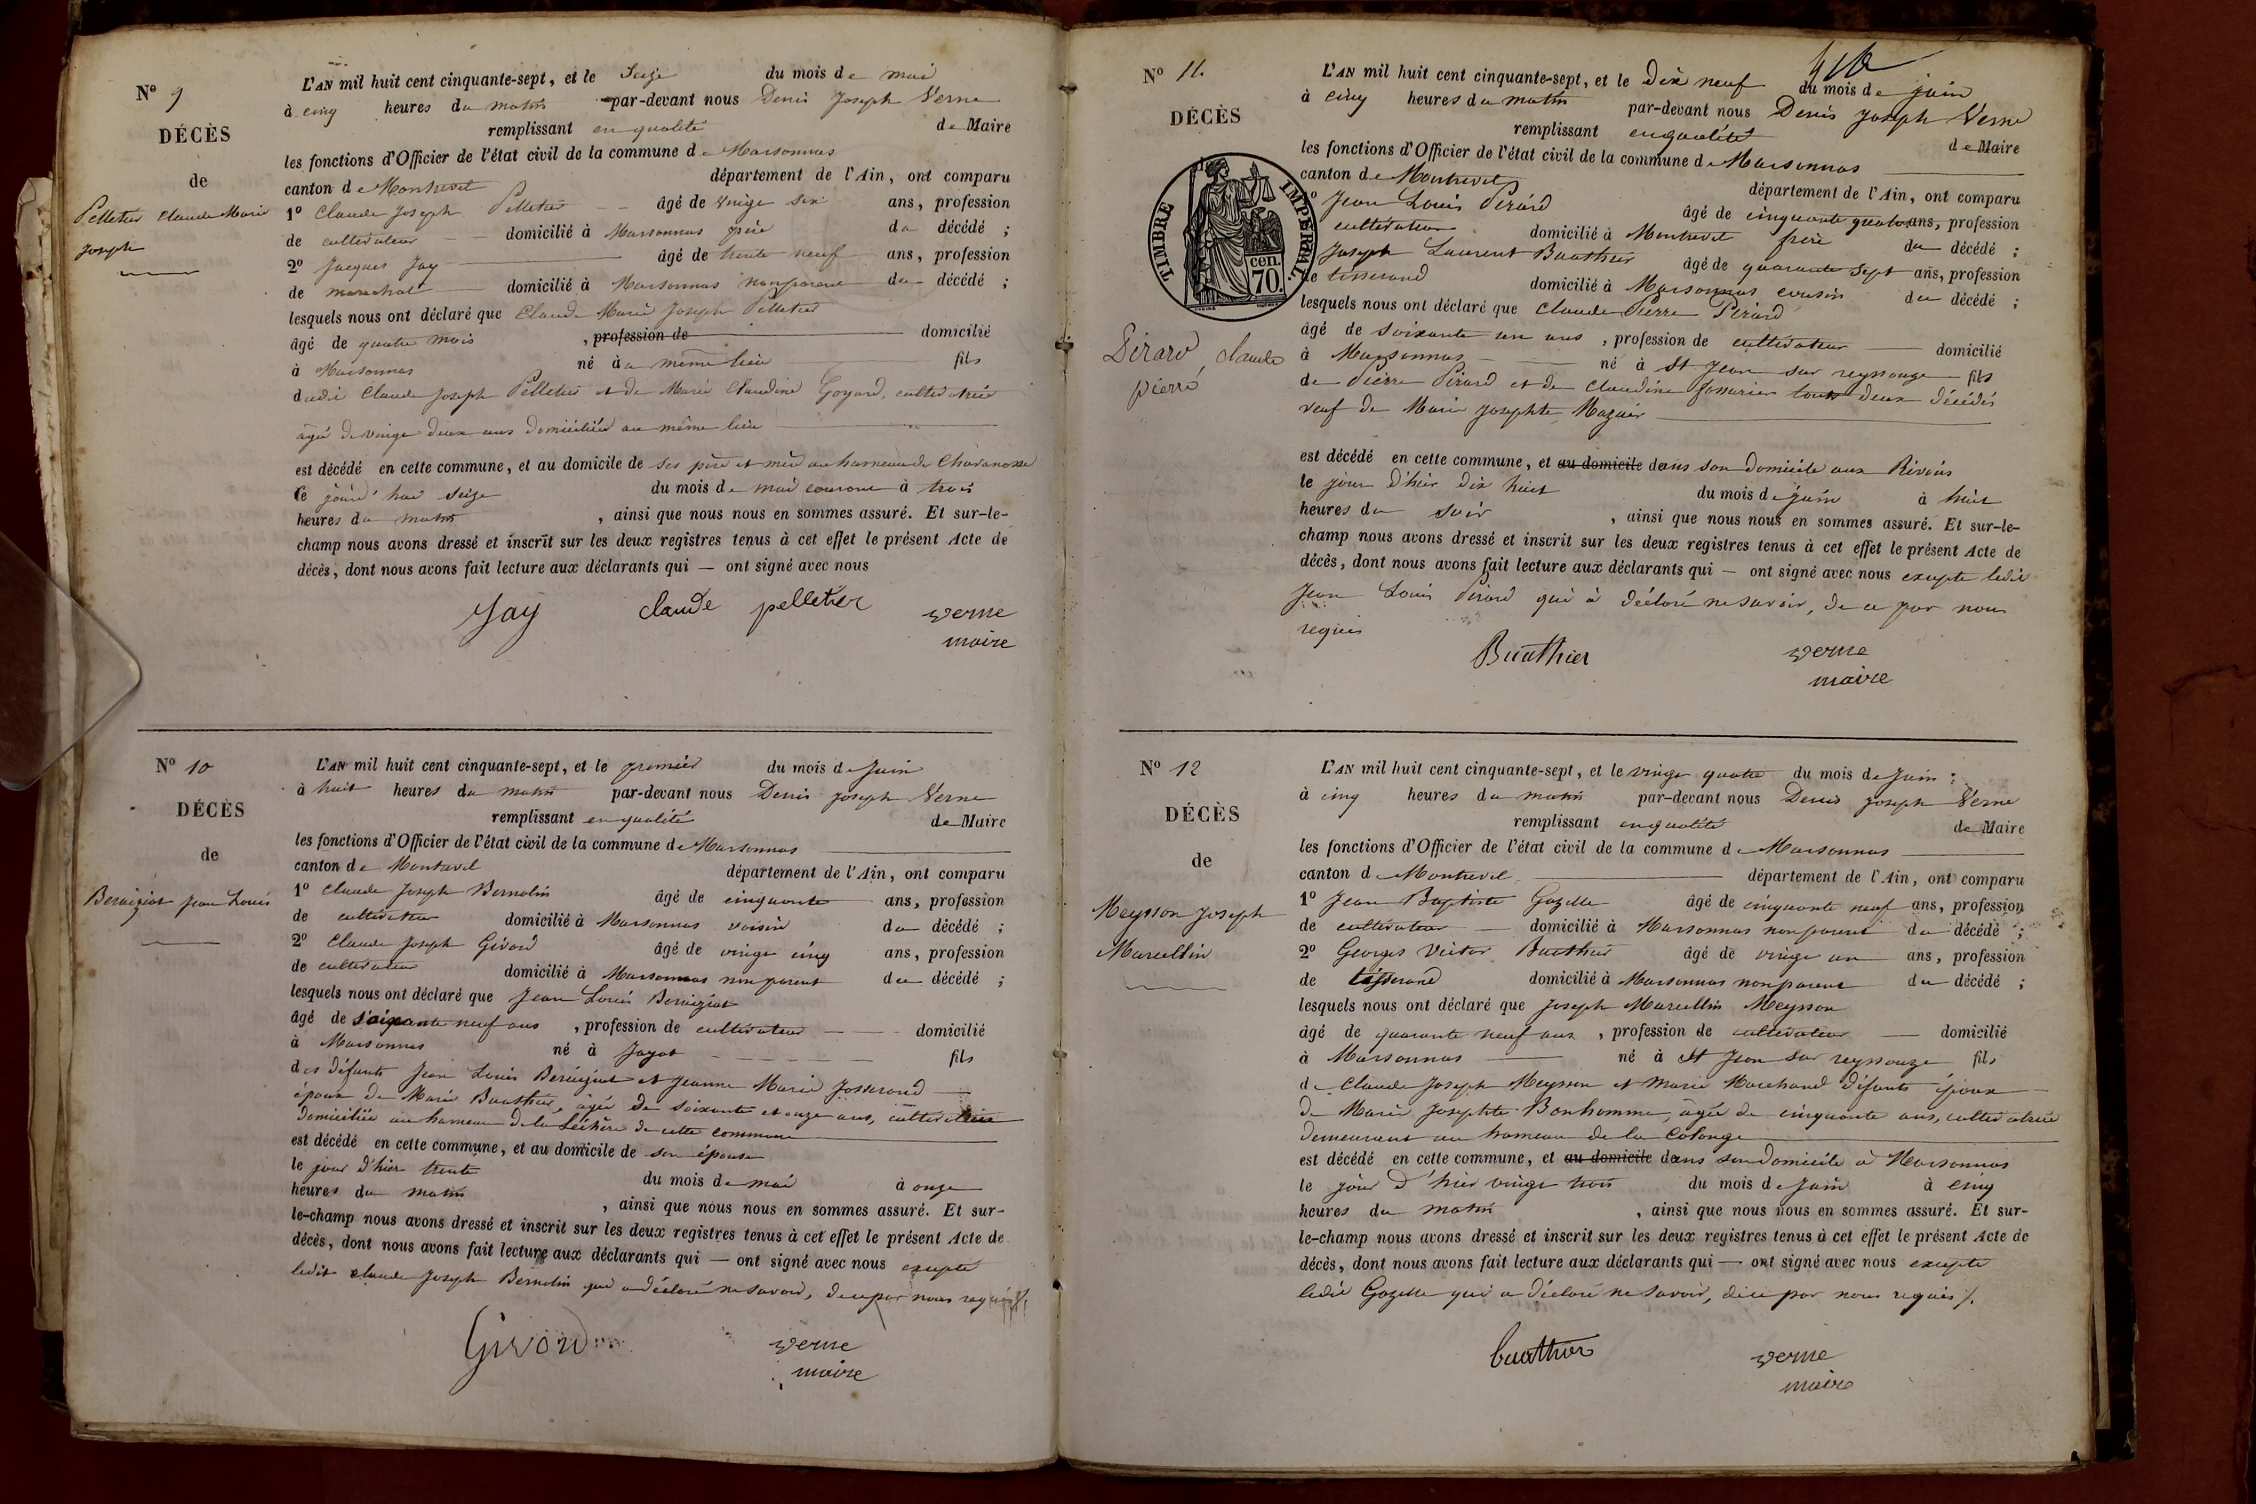 N° 9
DÉCÈS
de
Pelletier Claude Marie
Joseph
L'AN mil huit cent cinquante-sept, et le Seize du mois de mai
à cinq heures du matin par-devant nous Denis Joseph Verne
remplissant en qualité de Maire
les fonctions d'Officier de l'état civil de la commune de Marsonnas
canton de Montrevel département de l'Ain, ont comparu
1° Claude Joseph Pelletier âgé de vingt six ans, profession
de cultivateur domicilié à Marsonnas père du décédé ;
2° Jacques Jay âgé de trente neuf ans, profession
de marechal domicilié à Marsonnas non parent du décédé ;
lesquels nous ont déclaré que Claude Marie Joseph Pelletier
âgé de quatre mois , profession de domicilié
à Marsonnas né à u même lieu fils
dudit Claude Joseph Pelletier et de Marie Claudine Goyard, cultivatrice
âgée de vingt deux ans domiciliée au même lieu
est décédé en cette commune, et au domicile de ses père et mère au hameau de Charanosse
le jourd'hui seize du mois de mai courant à trois
heures du matin , ainsi que nous nous en sommes assuré. Et sur-le-
champ nous avons dressé et inscrit sur les deux registres tenus à cet effet le présent Acte de
décès, dont nous avons fait lecture aux déclarants qui — ont signé avec nous
Jay claude pelletier verne
maire
N° 10
DÉCÈS
de
Beraiziat Jean Louis
L'AN mil huit cent cinquante-sept, et le premier du mois de Juin
à huit heures du matin par-devant nous Denis Joseph Verne
remplissant en qualité de Maire
les fonctions d'Officier de l'état civil de la commune de Marsonnas
canton de Montrevel département de l'Ain, ont comparu
1° Claude Joseph Bernolin âgé de cinquante ans, profession
de cultivateur domicilié à Marsonnas voisin du décédé ;
2° Claude Joseph Givord âgé de vingt cinq ans, profession
de cultivateur domicilié à Marsonnas non parent du décédé ;
lesquels nous ont déclaré que Jean Louis Beraiziat
âgé de soixante neuf ans , profession de cultivateur domicilié
à Marsonnas né à Jayat fils
des défunts Jean Louis Beraiziat et Jeanne Marie Josserand
époux de Marie Buathier, âgée de soixante et onze ans, cultivatrice
domiciliée au hameau de la Léchère de cette commune
est décédé en cette commune, et au domicile de son épouse
le jour d'hier trente du mois de mai à onze
heures du matin , ainsi que nous nous en sommes assuré. Et sur-
le-champ nous avons dressé et inscrit sur les deux registres tenus à cet effet le présent Acte de
décès, dont nous avons fait lecture aux déclarants qui — ont signé avec nous excepté
ledit Claude Joseph Bernolin qui a déclaré ne savoir, de ce par nous requis
Givord verne
maire
N° 11.
DÉCÈS
TIMBRE IMPÉRIAL
70 cen.
Pirard, Claude
Pierre
L'AN mil huit cent cinquante-sept, et le Dix neuf du mois de juin
à cinq heures du matin par-devant nous Denis Joseph Verne
remplissant en qualité de Maire
les fonctions d'Officier de l'état civil de la commune de Marsonnas
canton de Montrevel département de l'Ain, ont comparu
1° Jean Louis Pirard âgé de cinquante quatre ans, profession
cultivateur domicilié à Montrevel frère du décédé ;
Joseph Laurent Buathier âgé de quarante sept ans, profession
de tisserand domicilié à Marsonnas cousin du décédé ;
lesquels nous ont déclaré que Claude Pierre Pirard
âgé de soixante un ans , profession de cultivateur domicilié
à Marsonnas né à St Jean sur reyssouze fils
de Pierre Pirard et de Claudine tous deux décédés
veuf de Marie Josephte Mazuir
est décédé en cette commune, et au domicile dans son domicile aux Rivons
le jour d'hier dix huit du mois de juin à huit
heures du soir , ainsi que nous nous en sommes assuré. Et sur-le-
champ nous avons dressé et inscrit sur les deux registres tenus à cet effet le présent Acte de
décès, dont nous avons fait lecture aux déclarants qui — ont signé avec nous excepté ledit
Jean Louis Pirard qui a déclaré ne savoir, de ce par nous
requis
Buathier verne
maire
N° 12
DÉCÈS
de
Meysson Joseph
Marcellin
L'AN mil huit cent cinquante-sept, et le vingt quatre du mois de Juin
à cinq heures du matin par-devant nous Denis Joseph Verne
remplissant en qualité de Maire
les fonctions d'Officier de l'état civil de la commune de Marsonnas
canton de Montrevel département de l'Ain, ont comparu
1° Jean Baptiste Gozette âgé de cinquante neuf ans, profession
de cultivateur domicilié à Marsonnas non parent du décédé ;
2° Georges Victor Buathier âgé de vingt un ans, profession
de tisserand domicilié à Marsonnas non parent du décédé ;
lesquels nous ont déclaré que Joseph Marcellin Meysson
âgé de quarante neuf ans , profession de cultivateur domicilié
à Marsonnas né à St Jean sur reyssouze fils
de Claude Joseph Meysson et Marie Marchand défunts époux
de Marie Josephte Bonhomme, âgée de cinquante ans, cultivatrice
demeurant au hameau de la Colonge
est décédé en cette commune, et au domicile dans son domicile à Marsonnas
le jour d'hier vingt trois du mois de Juin à cinq
heures du matin , ainsi que nous nous en sommes assuré. Et sur-
le-champ nous avons dressé et inscrit sur les deux registres tenus à cet effet le présent Acte de
décès, dont nous avons fait lecture aux déclarants qui — ont signé avec nous excepté
ledit Gozette qui a déclaré ne savoir, de ce par nous requis
buathier verne
maire